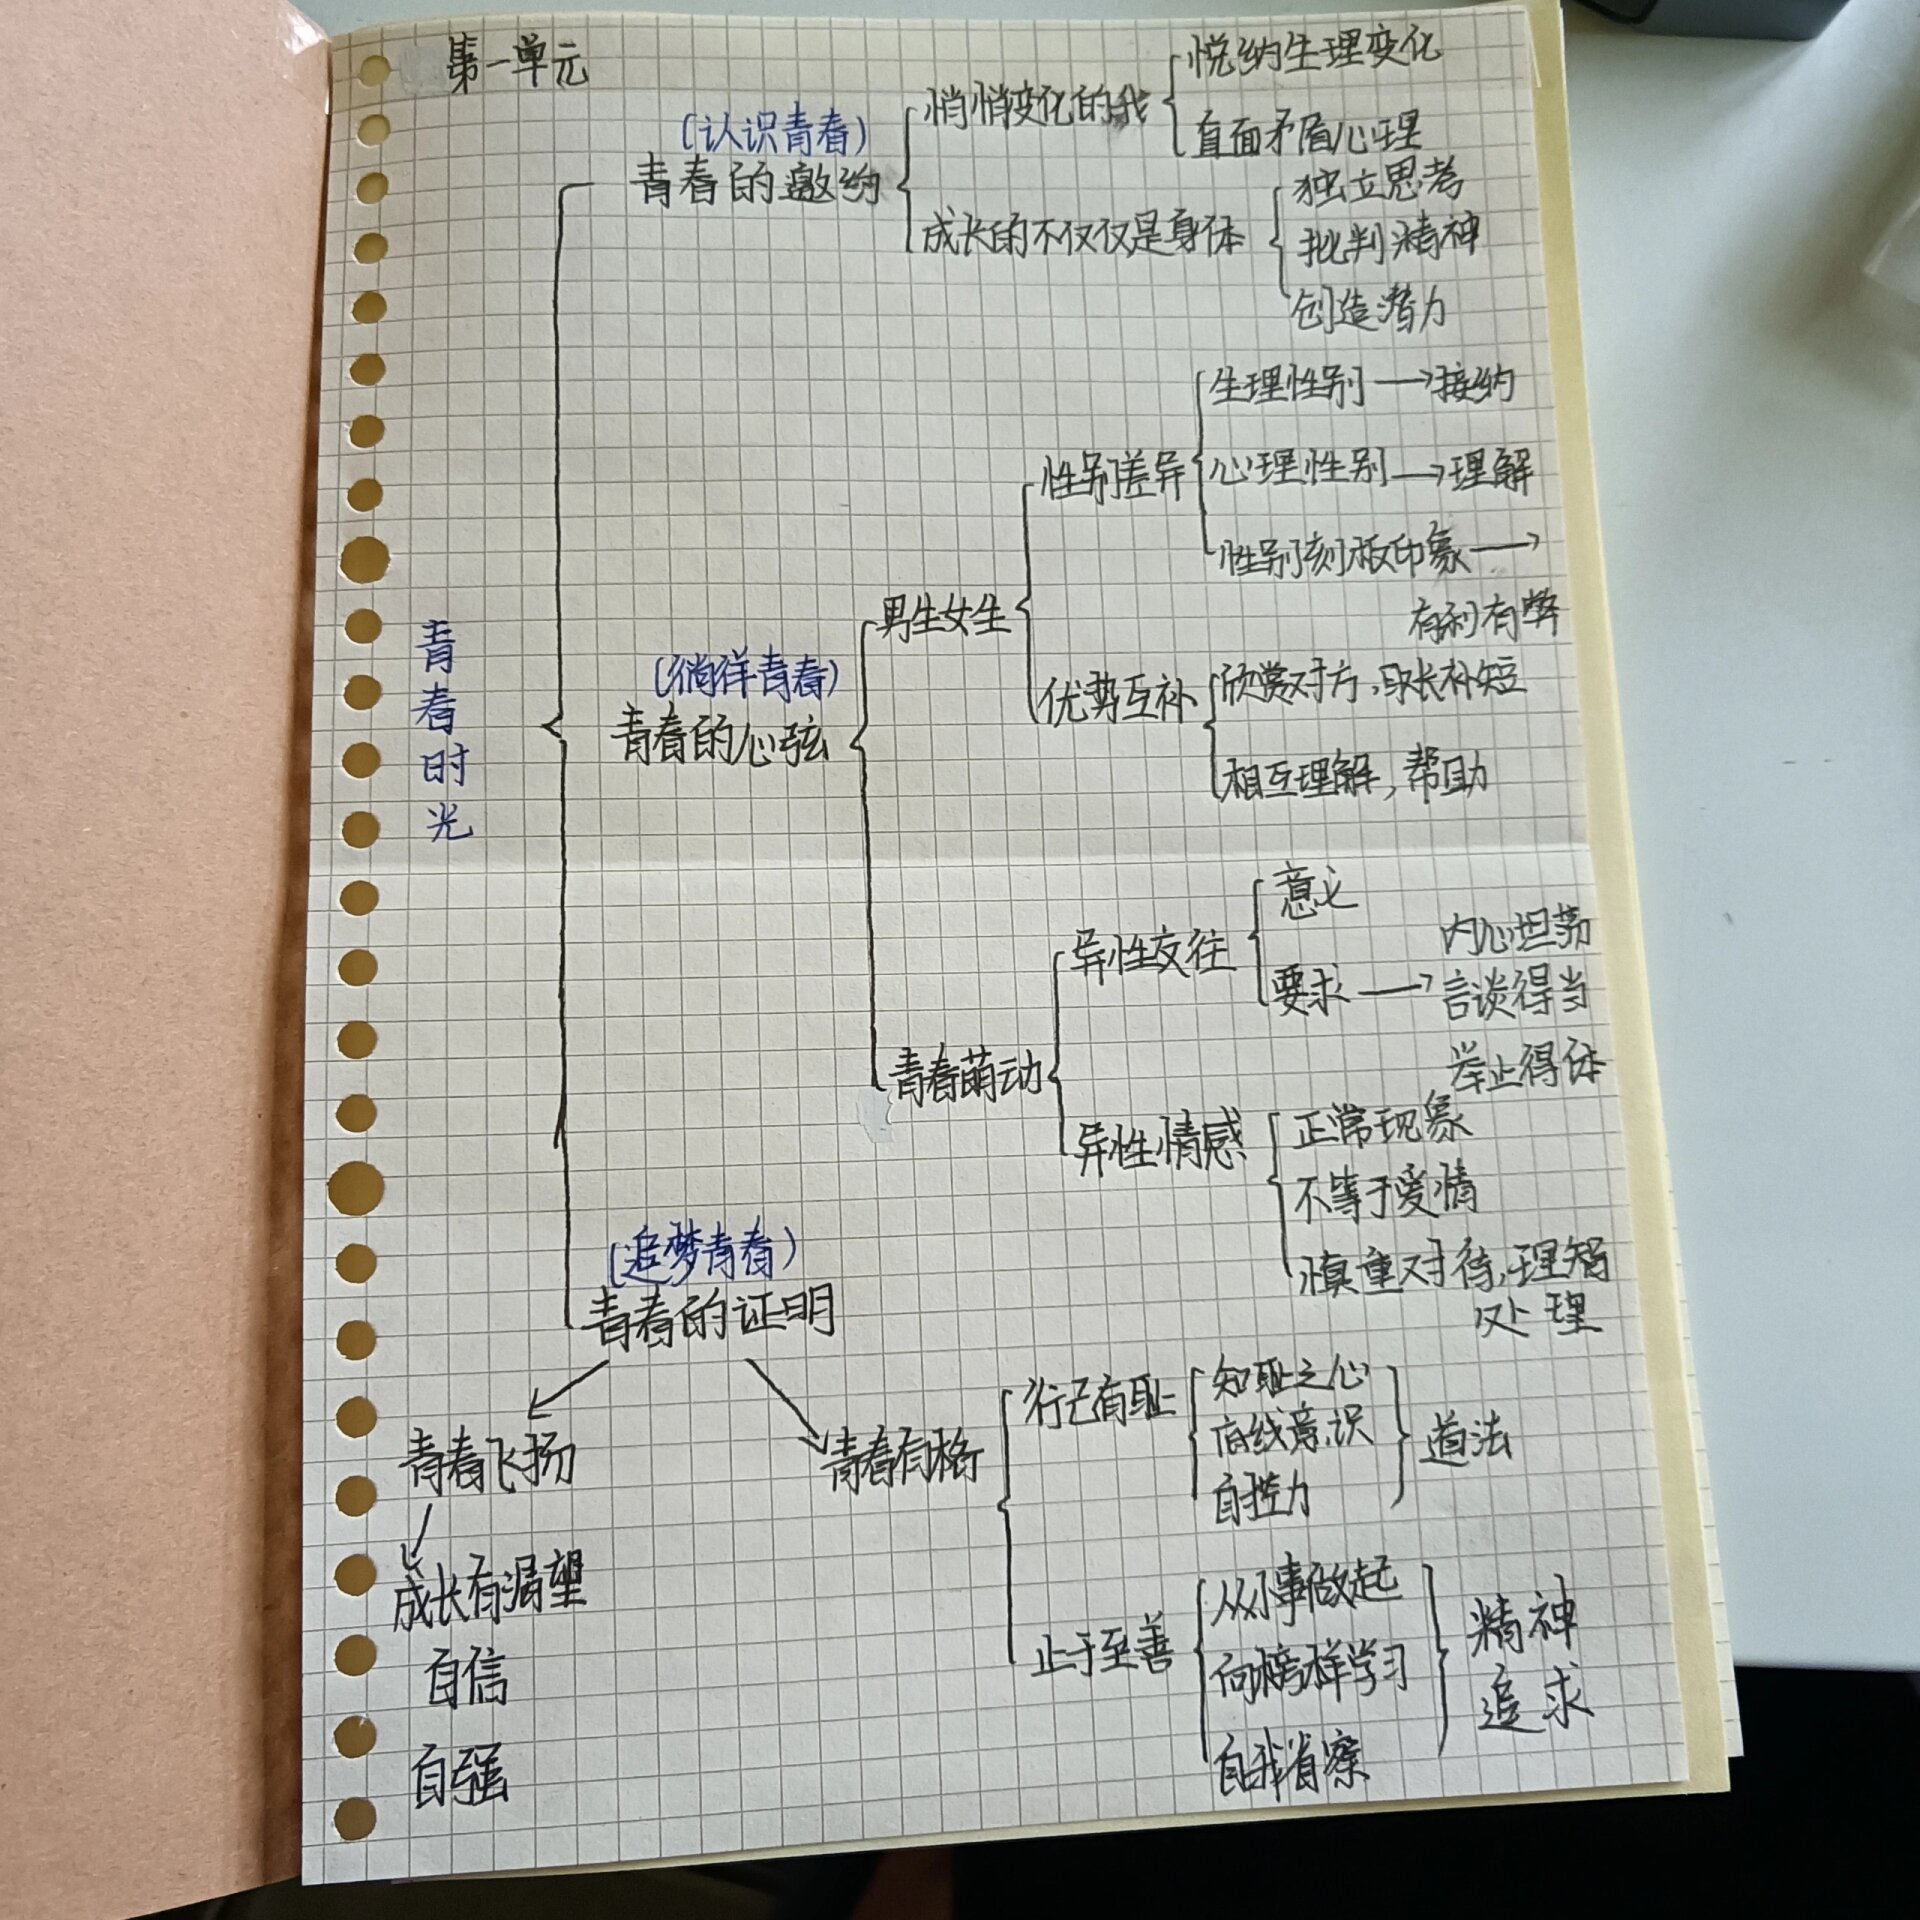 第一单元
青春时光
(认识青春)
青春的邀约
悄悄变化的我
悦纳生理变化
直面矛盾心理
成长的不仅仅是身体
独立思考
批判精神
创造潜力
(徜徉青春)
青春的心弦
男生女生
性别差异
生理性别→接纳
心理性别→理解
性别刻板印象→
有利有弊
优势互补
欣赏对方,取长补短
相互理解,帮助
青春萌动
异性交往
意义
要求→
内心坦荡
言谈得当
举止得体
异性情感
正常现象
不等于爱情
慎重对待,理智
处理
(追梦青春)
青春的证明
青春飞扬
成长有渴望
自信
自强
青春有格
行己有耻
知耻之心
底线意识
自控力
道法
止于至善
从小事做起
向榜样学习
自我省察
精神
追求